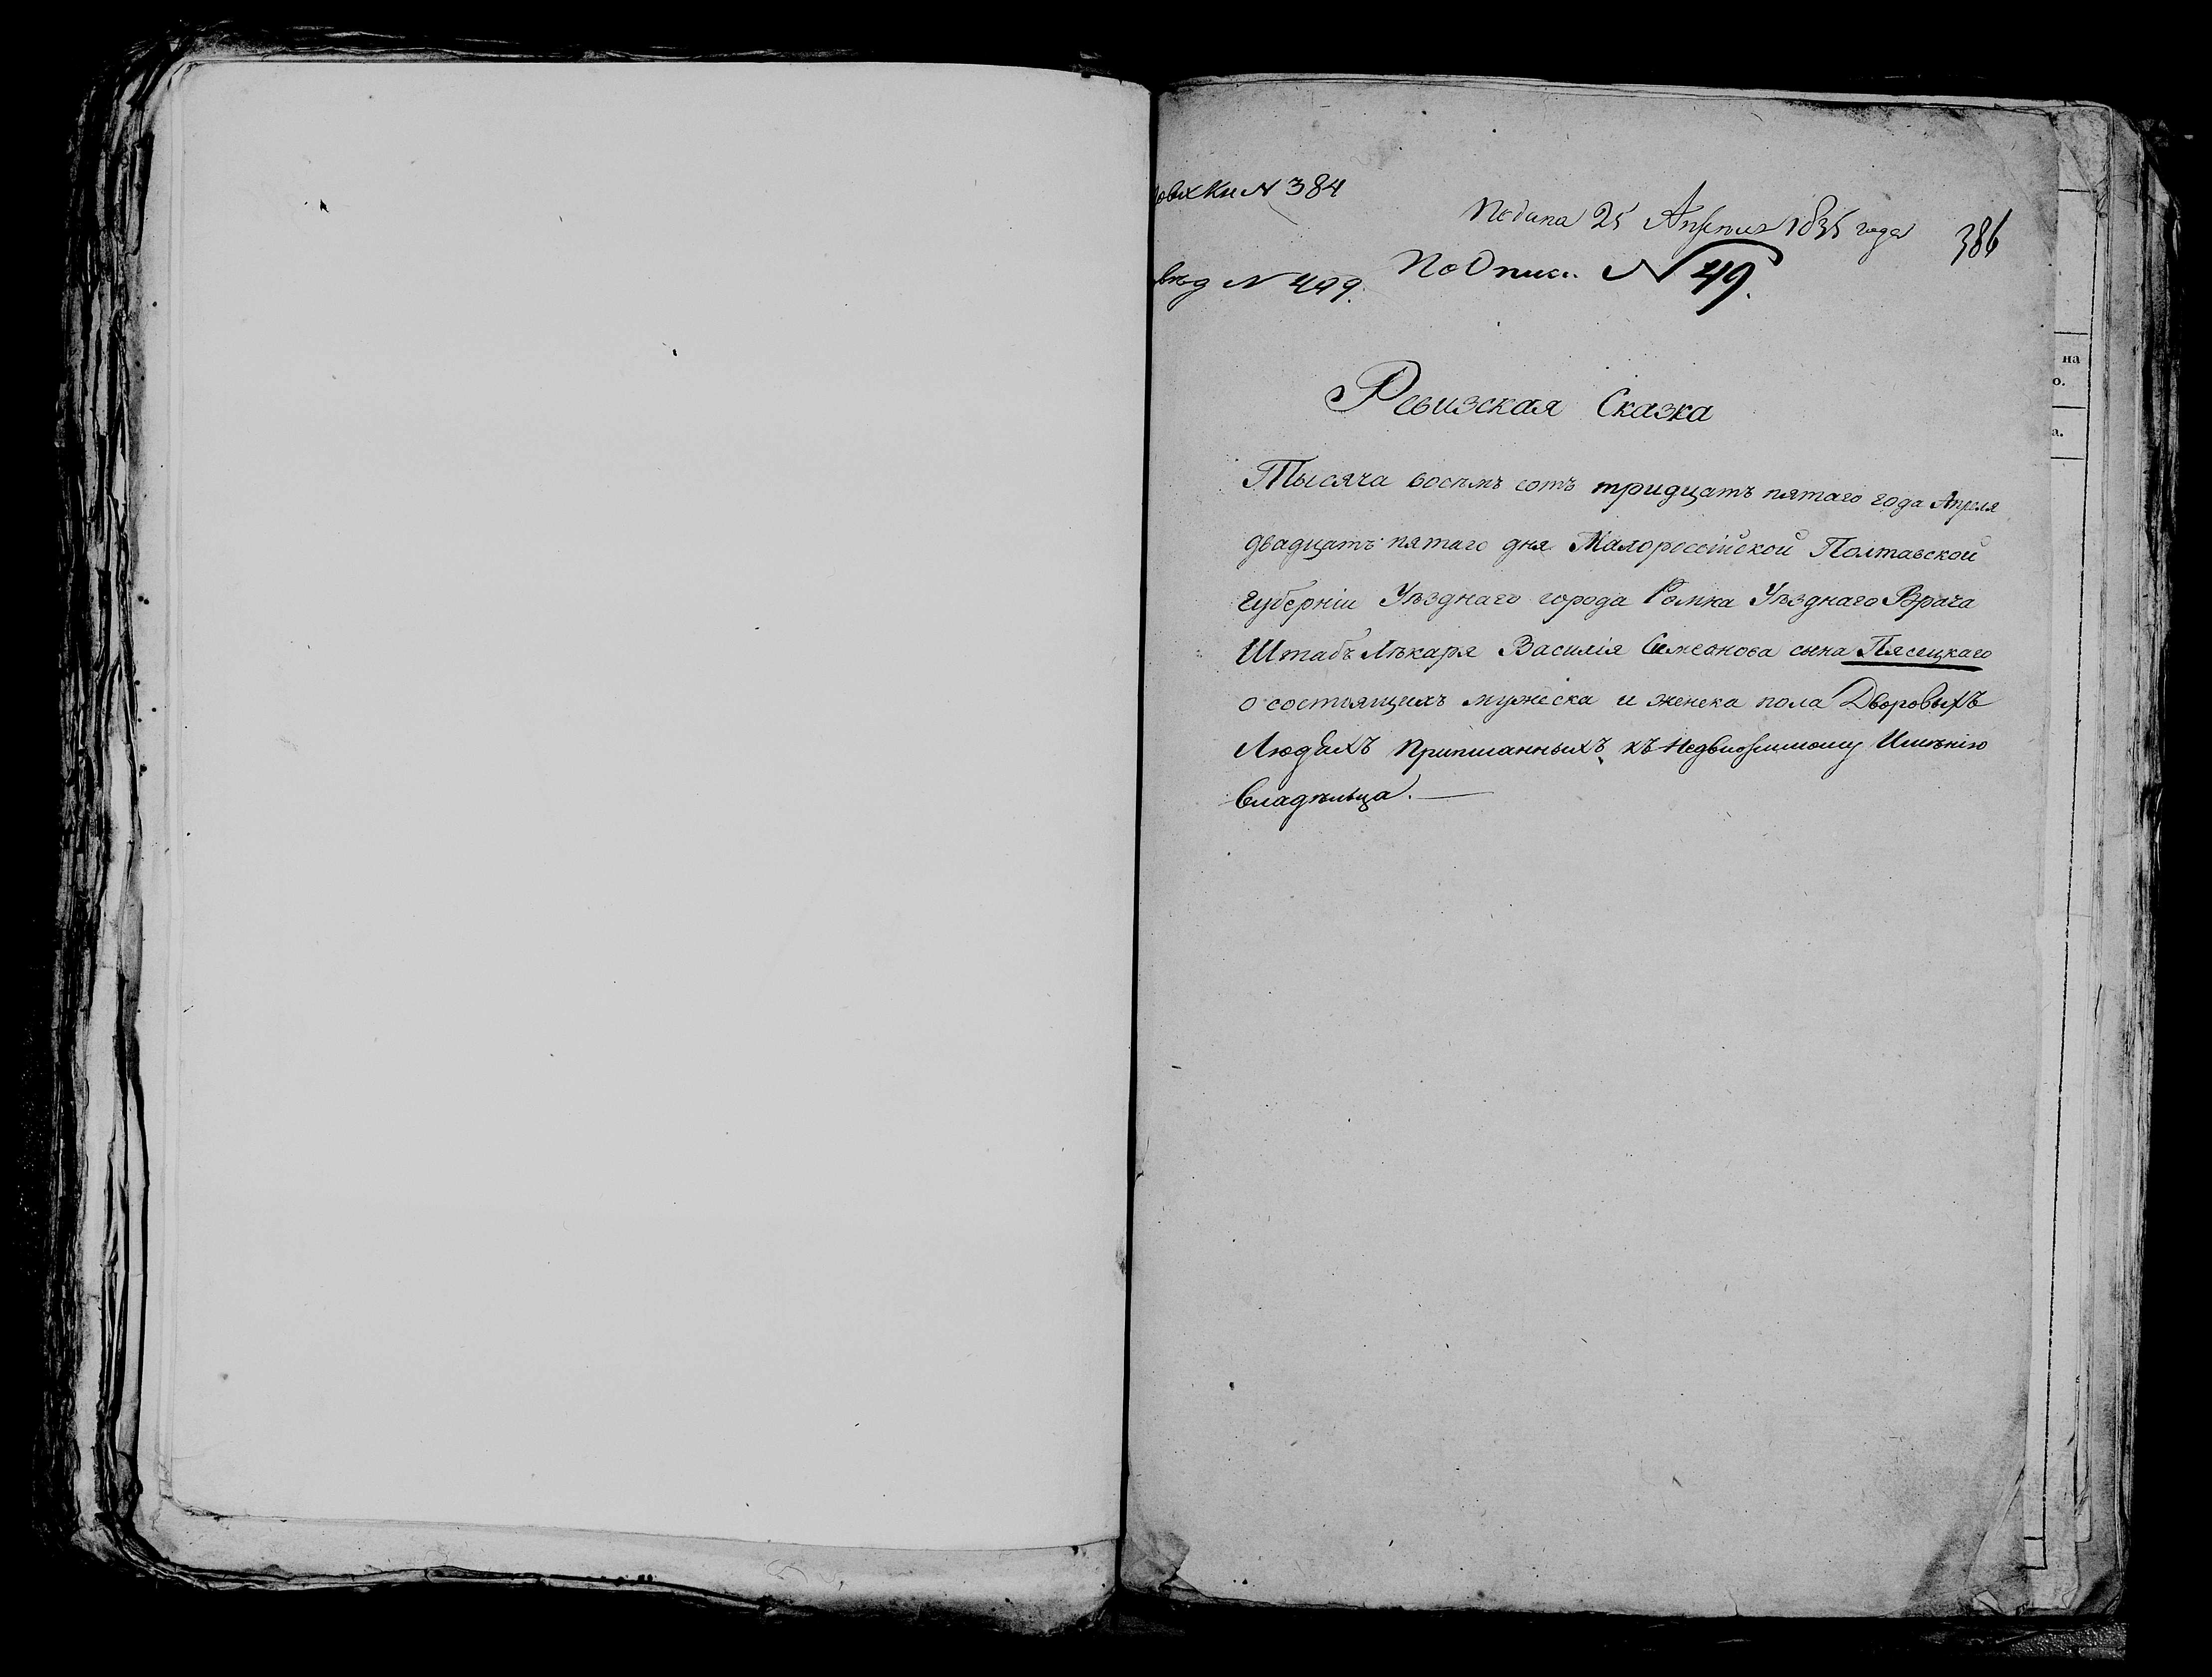 овхки N 384
Подана 25 Апреля 1835 года
386
вѣд N 499.
По Опис. N 49.
Ревизская Сказка
Тысяча восемь сотъ тридцать пятаго года Апреля
двадцать пятаго дня Малоросейской Полтавской
Губерніи Уѣзднаго города Ромна Уѣзднаго Врача
Штабъ Лѣкаря Василія Симеонова сына Пясецкаго
о состоящихъ мужеска и женска пола Дворовыхъ
Людяхъ приписанныхъ къ Недвижимому Имѣнію
Владѣльца.
на
о.
а.